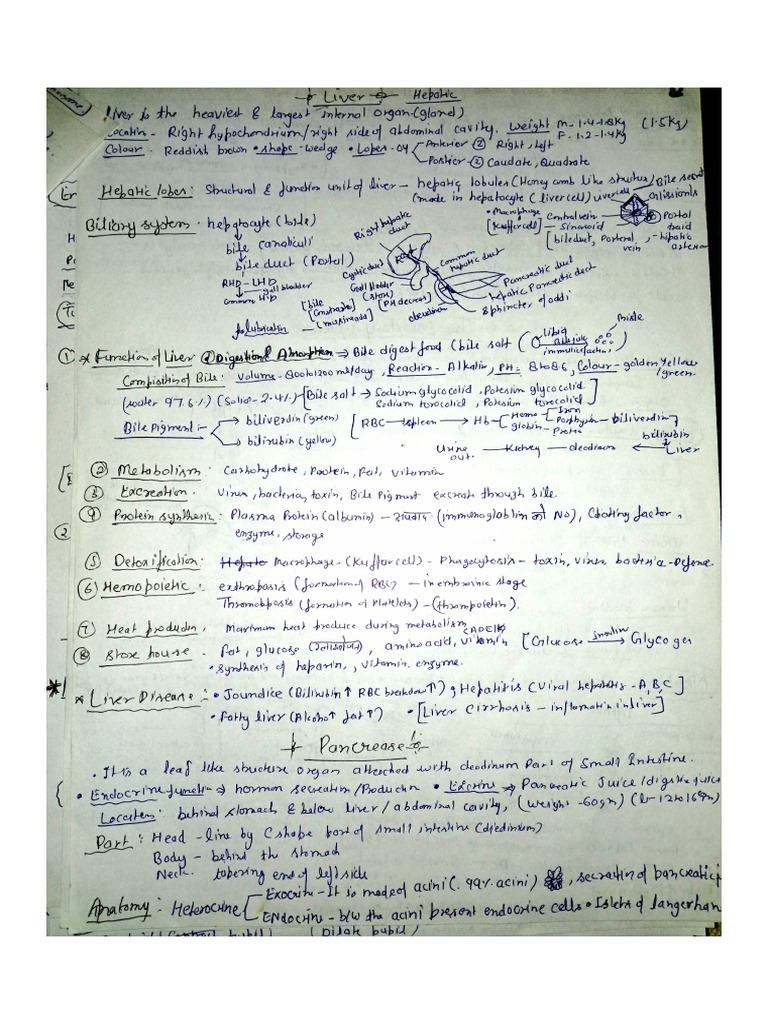 Liver Hepatic
Liver is the heaviest & largest internal organ (gland)
Location - Right hypochondrium/right side of abdominal cavity. Weight M - 1.4-1.8kg (1.5kg)
F - 1.2-1.4kg
Colour - Reddish brown • shape - wedge • Lobes - 04 Anterior ② Right, left
Posterior ② Caudate, Quadrate
Hepatic lobes: Structural & function unit of liver - hepatic lobules (Honey comb like
(made in hepatocyte (liver cell)
• Macrophage
[Kuffer cell]
Central vein
Sinusoid
Portal
[bileduct, Porteral vein,
Biliary system - hepatocyte (bile)
bile canaliculi
bile duct (Portal)
RHD - LHD
gall bladder
common HD
Right hepatic duct
Cystic duct
Gall bladder (store)
Common hepatic duct
Pancreatic duct
hepatic Pancreatic duct
Sphincter of oddi
① * Function of Liver ① Digestion & Absorption → Bile digest food (bile salt
Composition of Bile: Volume - 800to1200 ml/day, Reaction - Alkalin, PH: 8to8.6, Colour - golden yellow
/green.
(water 97.6%) (Solid - 2.4%) [Bile salt → Sodium glycocolid, Potesium glycocolid
Sodium turocolid, Potesium turocolid]
Bile Pigment :- biliverdin (green)
bilirubin (yellow)
[RBC → Spleen → Hb Heme Iron
Porphyrin - Biliverdin]
globin - Protin
bilirubin
Urine out. ← Kidney ← deodinum ← Liver
② Metabolism : Carbohydrate, Protein, fat, vitamin
③ Excreation : Virus, bacteria, toxin, Bile Pigment excreate through bile
④ Protein synthesis : Plasma Protein (albumin) - अपवाद (immunogloblin को No), Clotting factor,
enzyme, storage
⑤ Detoxification : Hepato Macrophage - (Kuffer cell) - Phagocytosis - toxin, virus, bacteria - Defense
⑥ Hemopoietic : erthroposis (formation of RBC) - in embronic stage
Thrombposis (formation of Platelets) - (thrompoietin).
⑦ Heat production, Maximum heat produce during metabolism
⑧ Store house - fat, glucose, amino acid, vitamin (ADEK) [Glucose insulin → Glycogen
• Synthesis of heparin, vitamin enzyme.
* Liver Disease :- • Joundice (Bilirubin↑ RBC breakdown↑) , Hepatitis (Viral hepatitis - A, B, C]
• Fatty liver (Alcohol↑ fat↑) • [Liver Cirrhosis - inflamation in liver]
Pancrease
• It is a leaf like structure organ atteched with deodinum Part of Small Intestine.
• Endocrine function → hormon secreation/Production • Exocrine → Pancreatic Juice/digestive juice
Location: behind stomach & below liver/abdominal cavity, (weight - 60gm)
Part: Head - line by C shape part of small intestine (deodinum)
Body - behind the stomach
Neck. tapering end of left side
Anatomy : Heterocrine Exocrine - It is made of acini (99% acini), secreation of pancreatic
Endocrine - b/w the acini present endocrine cells • Islets of langerhan